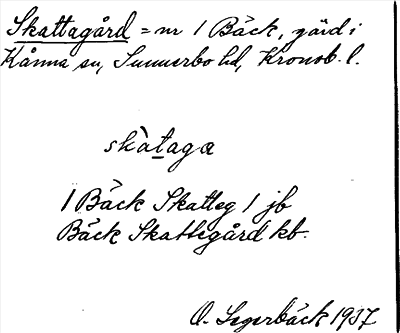 Skattagård = nr 1 Bäck, gård i
Kånna sn, Sunnerbo hd, Kronob. l.
skàtaga
1 Bäck Skatteg / jb
Bäck Skattegård kb.
O. Segerbäck 1937